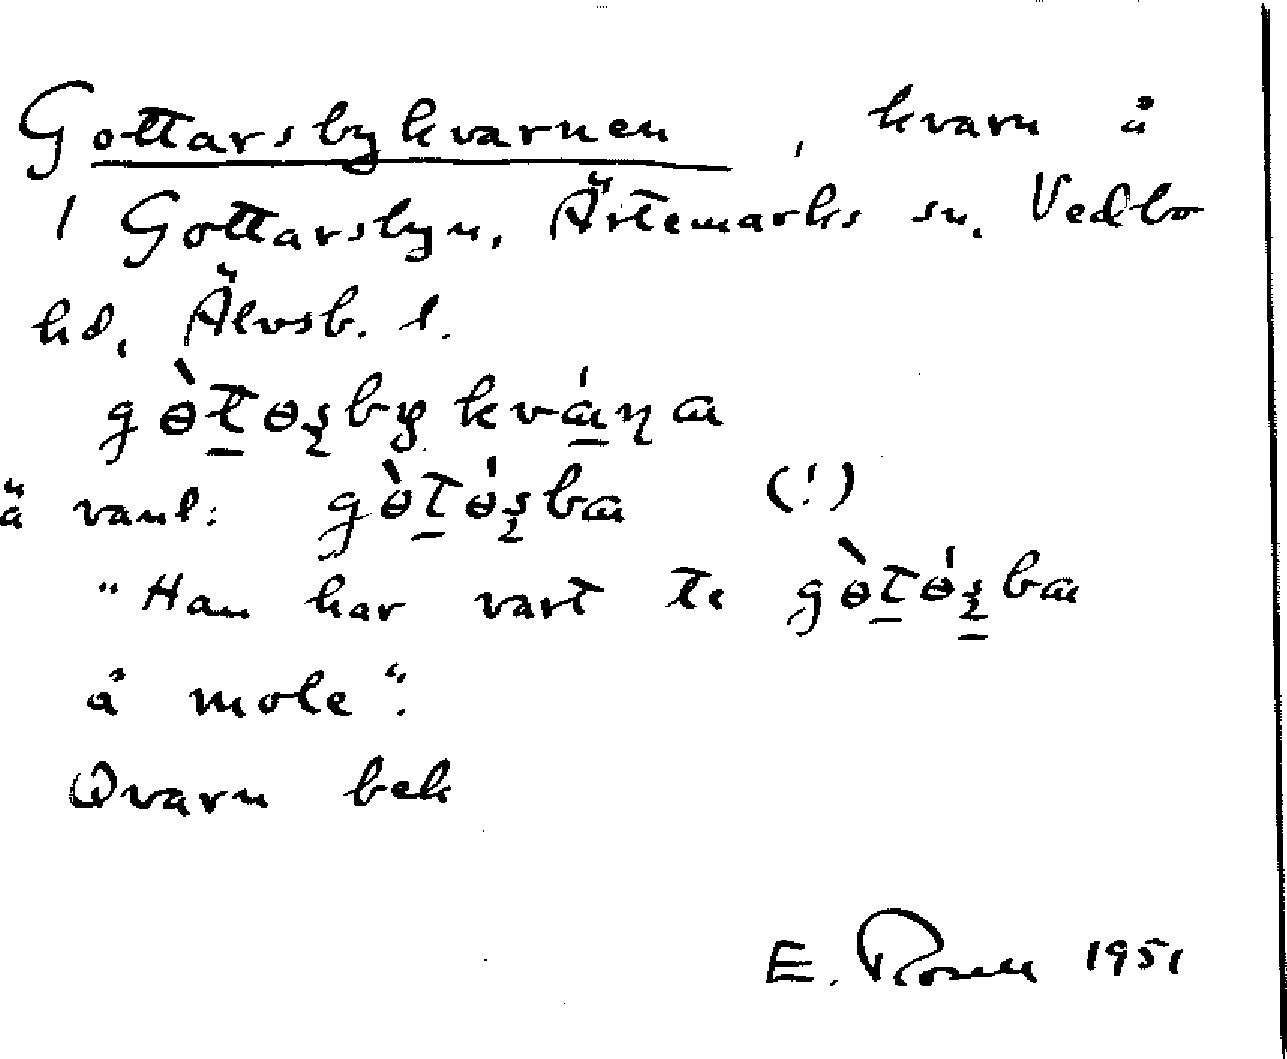 Gottarsbykvarnen, kvarn å
1 Gottarsbyn, Ärtemarks sn, Vedbo
hd, Älvsb. l.
gὸt̲ɵʂby kvá̲ɳa
ä vanl: gὸt̲ɵ́ʂba (!)
"Han har vart te gὸt̲ɵ́ʂ̲ba
å mole".
Qvarn bek
E. Rosell 1951